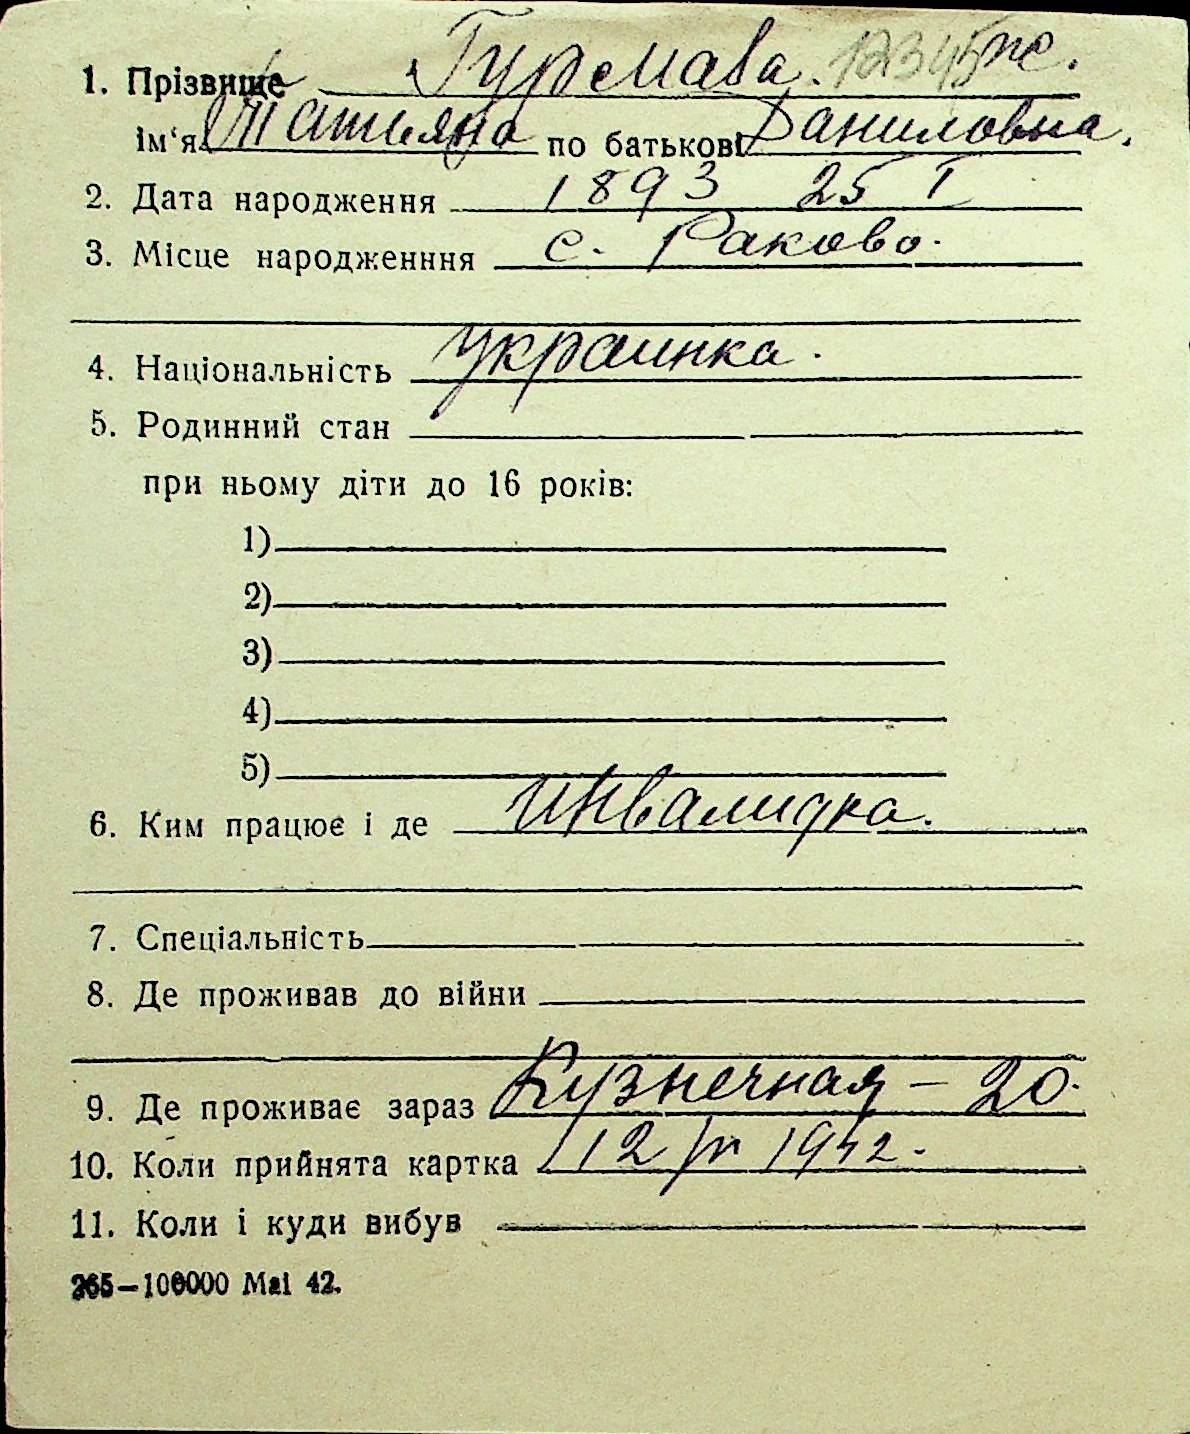 1. Прізвище Гурмава. 12345 ж.
ім‘я Татьяна по батькові Даниловна.
2. Дата народження 1893 25 I
3. Місце народженння с. Раково.
4. Національність украинка.
5. Родинний стан
при ньому діти до 16 років:
1)
2)
3)
4)
5)
6. Ким працює і де инвалидка.
7. Спеціальність
8. Де проживав до війни
9. Де проживає зараз Кузнечная – 20.
10. Коли прийнята картка 12/ 1942.
11. Коли і куди вибув
265–100000 Mai 42.